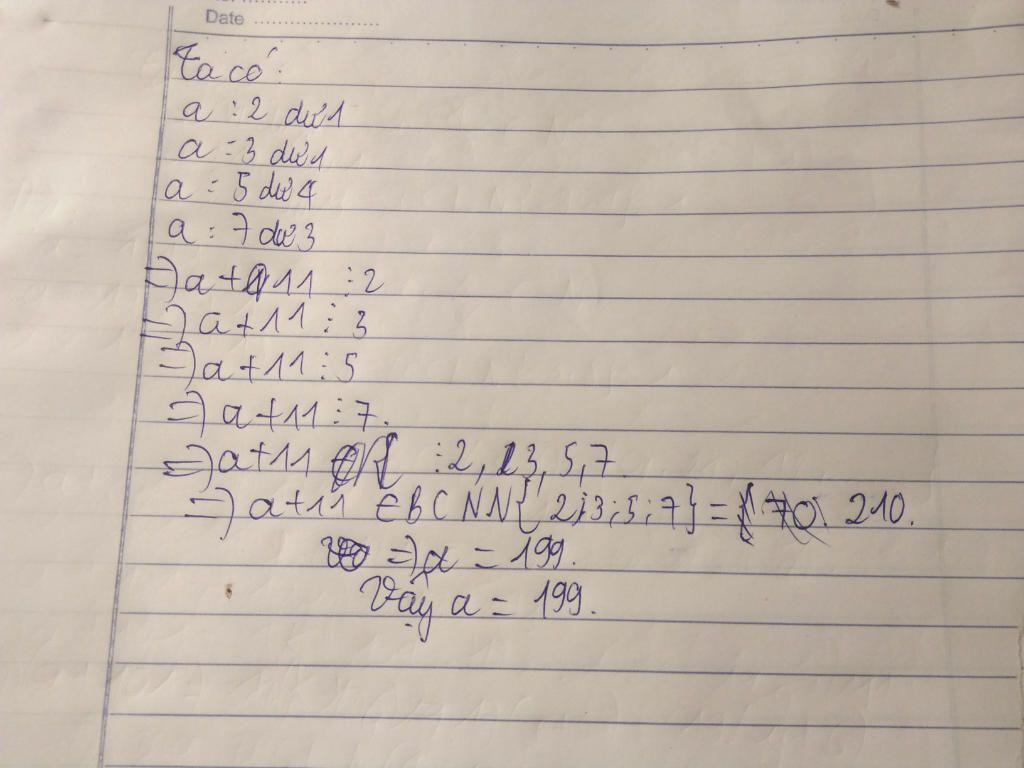 Date ..................
Ta có:
a : 2 dư 1
a : 3 dư 1
a : 5 dư 4
a : 7 dư 3
=) a + 11 ⋮ 2
=) a + 11 ⋮ 3
=) a + 11 ⋮ 5
=) a + 11 ⋮ 7.
=) a + 11 ⋮ 2, 3, 5, 7
=) a + 11 ∈ BCNN{2;3;5;7} = 210.
=) a = 199.
Vậy a = 199.